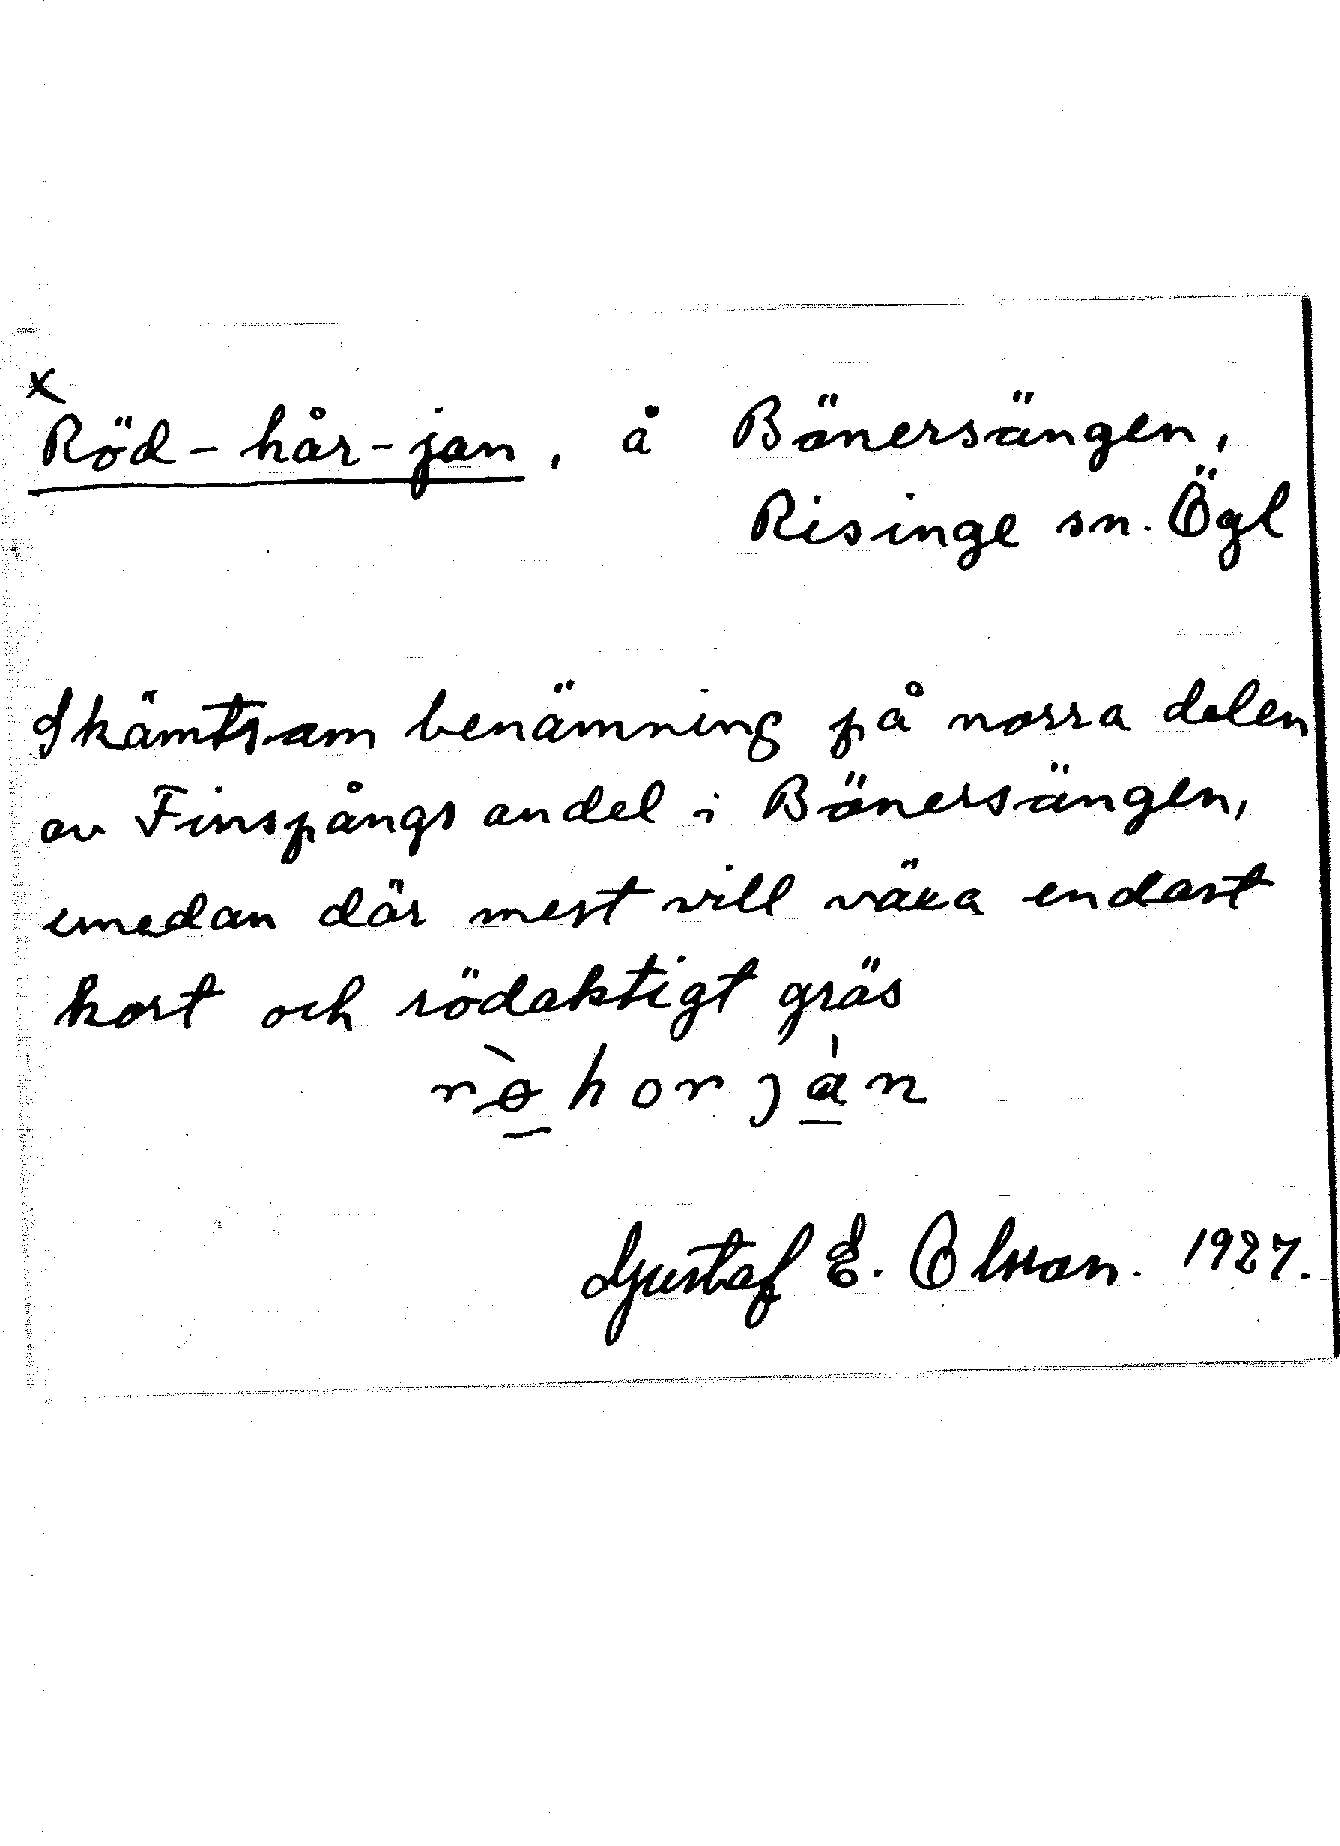 x
Röd-hår-jan, å Bänersängen,
Risinge sn. Ögl
Skämtsam benämning på norra delen
av Finspångs andel i Bänersängen,
emedan där mest vill växa endast
kort och rödaktigt gräs
rø̀horjàn
Gustaf E. Olsson. 1927.